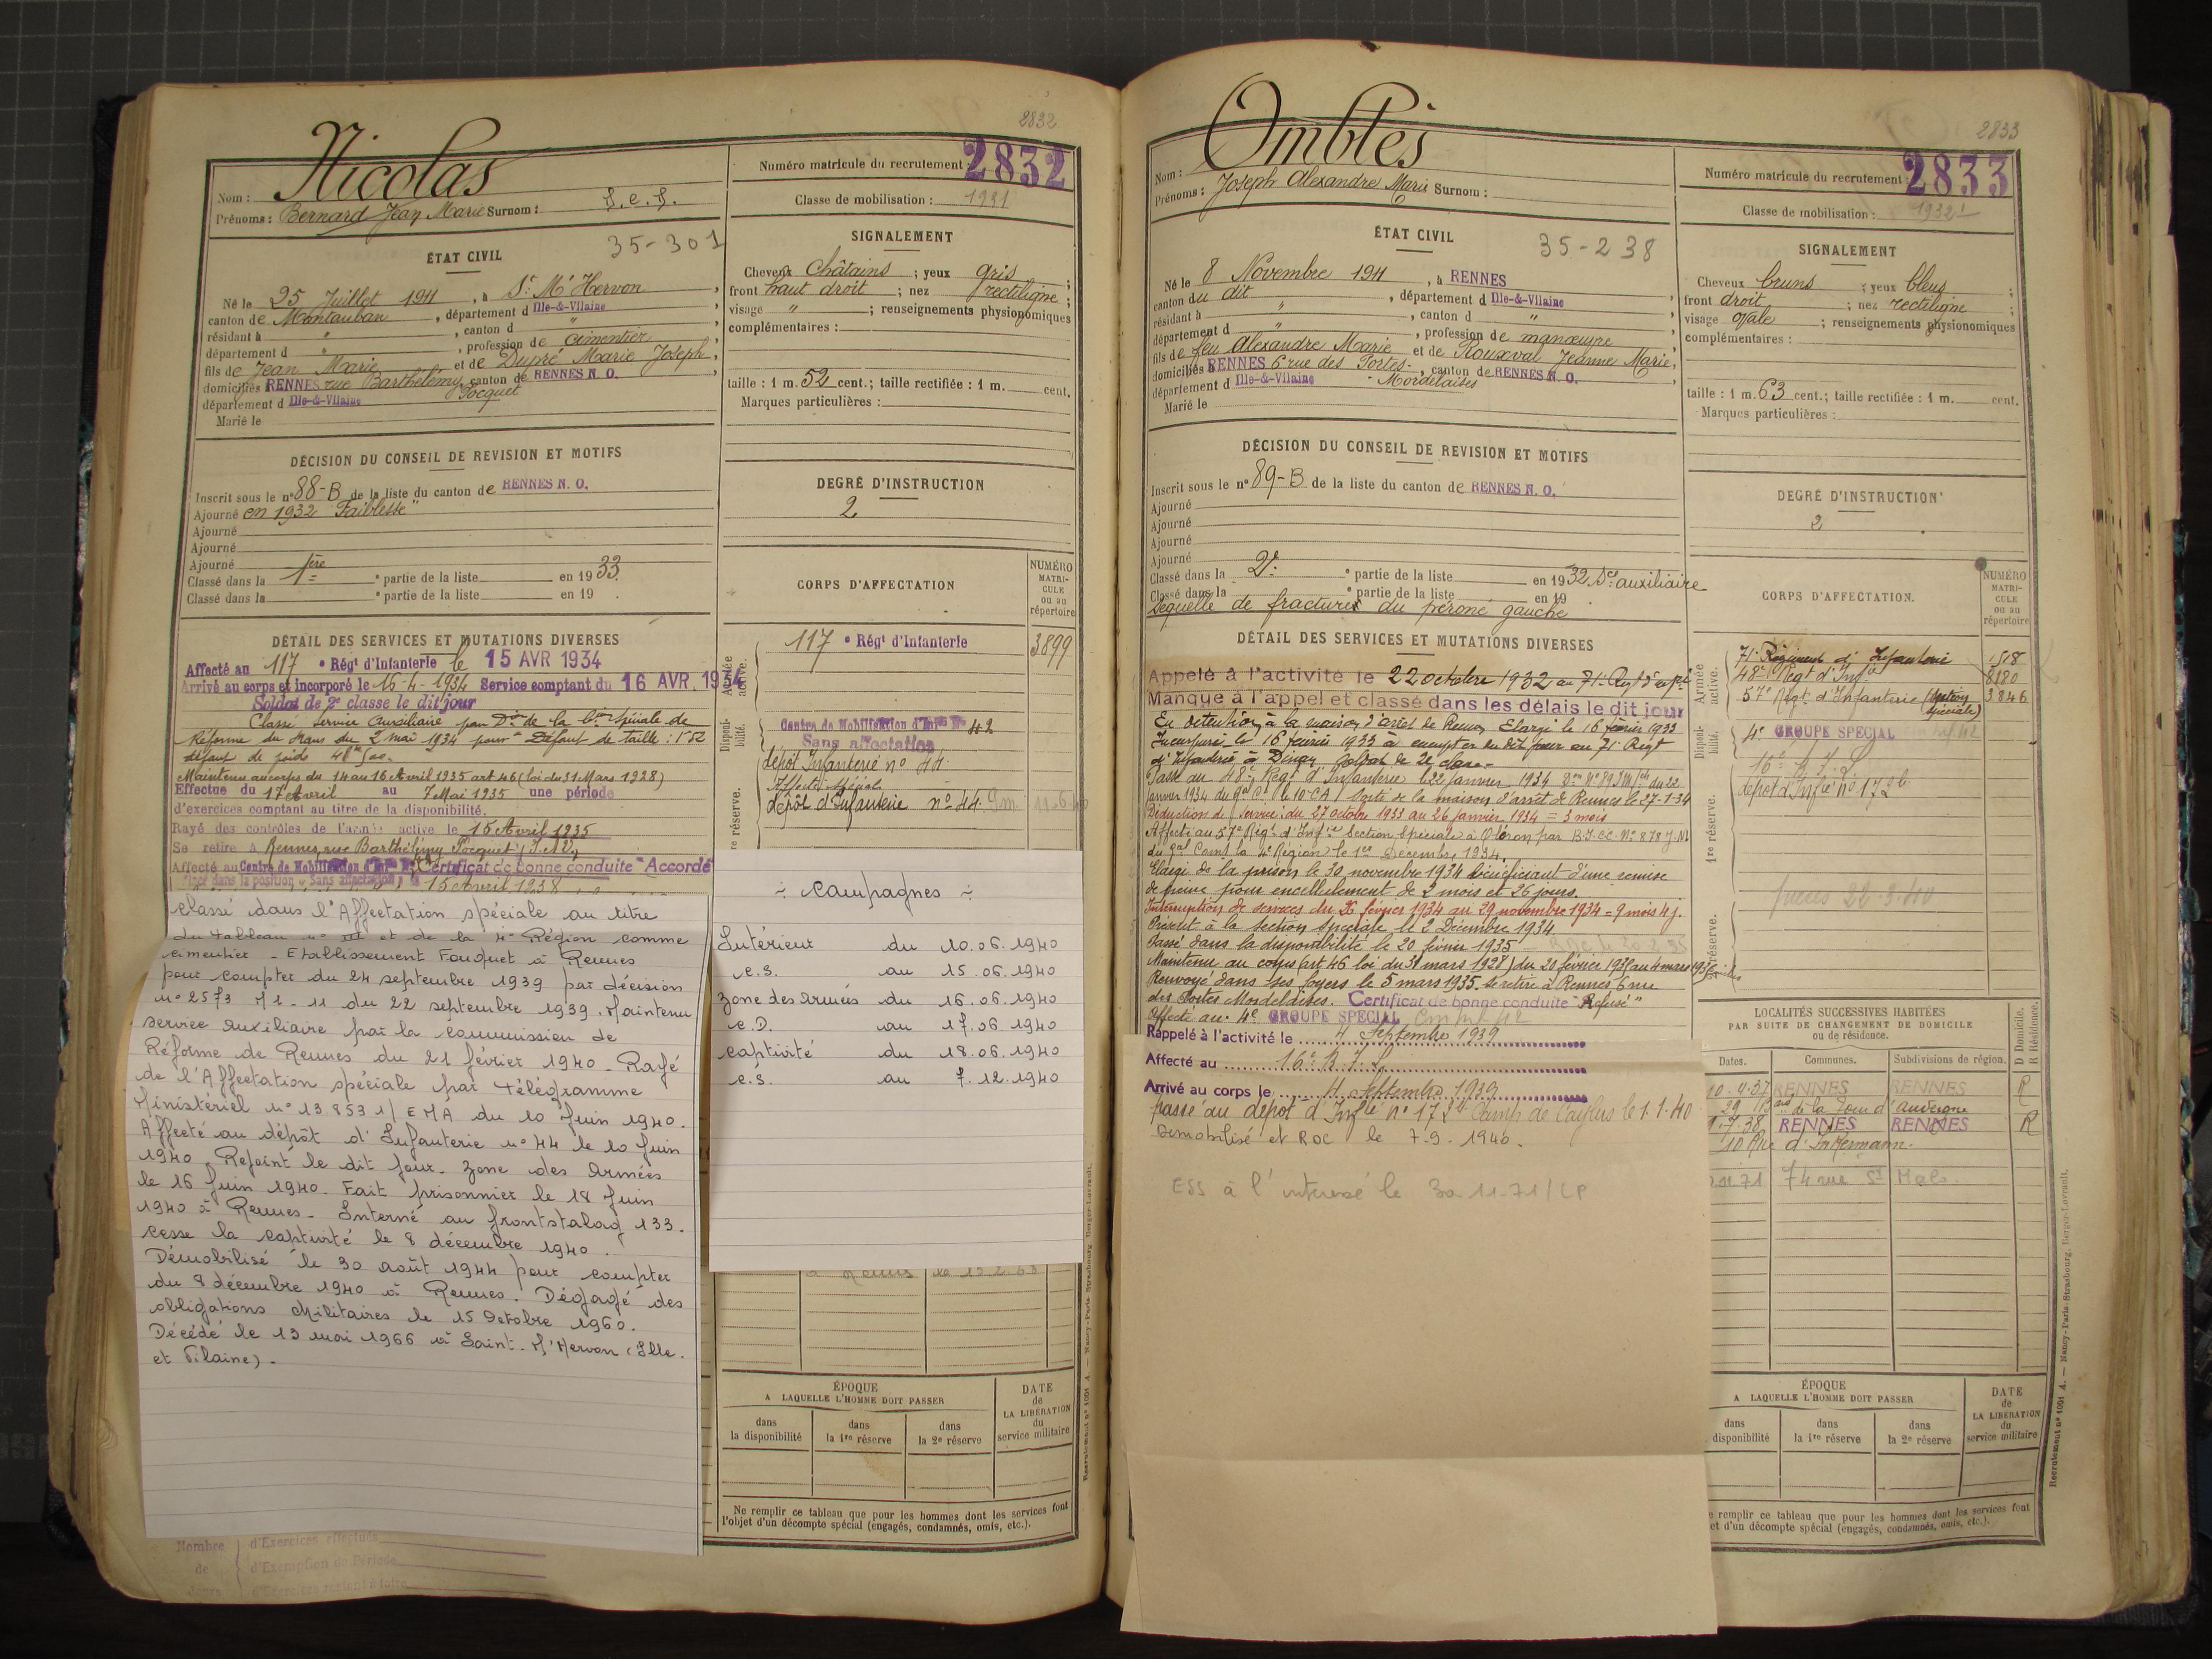 2832
Nicolas
Nom :
Prénoms : Bernard Jean Marie Surnom : S.e.S.
Numéro matricule du recrutement : 2832
Classe de mobilisation : 1931
ÉTAT CIVIL
35-301
Né le 25 Juillet 1911, à St M' Hervon,
canton de Montauban, département d Ille-&-Vilaine
résidant à ", canton d ",
département d ", profession de cimentier
fils de Jean Marie et de Dupré Marie Joseph,
domiciliés RENNES rue Barthélemy Pocquet, canton de RENNES N. O.
département d Ille-&-Vilaine
Marié le
SIGNALEMENT
Cheveux châtains ; yeux gris ;
front haut droit ; nez rectiligne ;
visage " ; renseignements physionomiques
complémentaires :
taille : 1 m. 52 cent.; taille rectifiée : 1 m. cent.
Marques particulières :
DÉCISION DU CONSEIL DE REVISION ET MOTIFS
Inscrit sous le n° 88-B de la liste du canton de RENNES N. O.
Ajourné en 1932 "Faiblesse"
Ajourné
Ajourné
Ajourné
Classé dans la 1ère partie de la liste en 1933.
Classé dans la partie de la liste en 19 .
DEGRÉ D'INSTRUCTION
2
CORPS D'AFFECTATION
NUMÉRO MATRI-CULE ou au répertoire
Armée active.
117e Régt d'Infanterie 3899
Disponi-bilité.
Centre de Mobilisation d'Infie N° 42
Sans affectation
dépôt Infanterie n° 44
Affecté spécial
dépôt d'Infanterie n° 44
re réserve.
DÉTAIL DES SERVICES ET MUTATIONS DIVERSES
Affecté au 117e Régt d'Infanterie le 15 AVR 1934
Arrivé au corps et incorporé le 16-4-1934 Service comptant du 16 AVR. 1934
Soldat de 2e classe le dit jour
Classé service auxiliaire par Don de la Con Spéciale de
Réforme du Mans du 2 mai 1934 pour "Défaut de taille : 1m52
défaut de poids 48k500.
Maintenu au corps du 14 au 16 Avril 1935 art 46 (loi du 31 Mars 1928)
Effectue du 17 Avril au 7 Mai 1935 une période
d'exercices comptant au titre de la disponibilité.
Rayé des contrôles de l'armée active le 15 Avril 1935
Se retire à Rennes, rue Barthélémy Pocquet (I.&V)
Affecté au Centre de Mobilisation d'Infie Certificat de bonne conduite "Accordé
Placé dans la position "Sans affectation" le 15 Avril 1938
classé dans l'Affectation spéciale au titre
du tableau n° III et de la 4e Région comme
cimentier - Etablissement Fouquet à Rennes
pour compter du 24 septembre 1939 par décision
n° 2573 M1-11 du 22 septembre 1939. Maintenu
service auxiliaire par la commission de
Réforme de Rennes du 21 février 1940 - Rayé
de l'Affectation spéciale par télégramme
Ministériel n° 13.853 1/EMA du 10 Juin 1940.
Affecté au dépôt d'Infanterie n° 44 le 10 Juin
1940. Rejoint le dit jour. Zone des Armées
le 16 Juin 1940. Fait prisonnier le 18 Juin
1940 à Rennes - Interné au frontstalag 133.
cesse la captivité le 8 décembre 1940.
Démobilisé le 30 août 1944 pour compter
du 8 décembre 1940 à Rennes. Dégagé des
obligations Militaires le 15 Octobre 1960.
Décédé le 13 mai 1966 à Saint-M'Hervon (Ille-
et Vilaine).
÷ Campagnes ÷
Intérieur du 10.06.1940
c.s. au 15.06.1940
Zone des Armées du 16.06.1940
c.D. au 17.06.1940
captivité du 18.06.1940
c.s. au 7.12.1940
ÉPOQUE
A LAQUELLE L'HOMME DOIT PASSER
dans la disponibilité
dans la 1re réserve
dans la 2e réserve
DATE de LA LIBÉRATION du service militaire
Ne remplir ce tableau que pour les hommes dont les services font
l'objet d'un décompte spécial (engagés, condamnés, omis, etc.).
Nombre de Jours
d'Exercices effectués
d'Exemption de Période
d'Exercices restant à faire
Recrutement n° 1091 A. — Nancy-Paris-Strasbourg, Berger-Levrault.
2833
Omblès
Nom :
Prénoms : Joseph Alexandre Marie Surnom :
Numéro matricule du recrutement : 2833
Classe de mobilisation : 1932
ÉTAT CIVIL
35-238
Né le 8 Novembre 1911, à RENNES
canton du dit, département d Ille-&-Vilaine
résidant à ", canton d ",
département d ", profession de manœuvre
fils de feu Alexandre Marie et de Rouxval Jeanne Marie,
domiciliés RENNES 6 rue des Portes-Mordelaises, canton de RENNES N. O.
département d Ille-&-Vilaine
Marié le
SIGNALEMENT
Cheveux bruns ; yeux bleus ;
front droit ; nez rectiligne ;
visage ovale ; renseignements physionomiques
complémentaires :
taille : 1 m. 63 cent.; taille rectifiée : 1 m. cent.
Marques particulières :
DÉCISION DU CONSEIL DE REVISION ET MOTIFS
Inscrit sous le n° 89-B de la liste du canton de RENNES N. O.
Ajourné
Ajourné
Ajourné
Ajourné
Classé dans la 2e partie de la liste en 1932 Sce auxiliaire
Classé dans la partie de la liste en 19
Sequelle de fracture du péroné gauche
DEGRÉ D'INSTRUCTION
2
CORPS D'AFFECTATION.
NUMÉRO MATRI-CULE ou au répertoire
Armée active.
71e Régiment d'Infanterie 1518
48e Régt d'Infie 8180
57e Régt d'Infanterie (Section spéciale) 3846
Disponi-bilité.
4e GROUPE SPECIAL
dépôt d'Infie n° 172
1re réserve.
réserve.
DÉTAIL DES SERVICES ET MUTATIONS DIVERSES
Appelé à l'activité le 22 octobre 1932 au 71e Regt d'Infie
Manque à l'appel et classé dans les délais le dit jour
En détention à la maison d'arrêt de Rennes. Elargi le 16 février 1933
Incorporé le 16 février 1933 à compter du dit jour au 71e Régt
d'Infanterie à Dinan Soldat de 2e classe.
Passé au 48e Regt d'Infanterie le 22 janvier 1934
janvier 1934 du Gal Ct le 10 CA. Sorti de la maison d'arrêt de Rennes le 27-1-34
Déduction de service : du 27 octobre 1933 au 26 janvier 1934 = 3 mois
Affecté au 57e Régt d'Infie Section Spéciale à Oléron par
du Gal Comt la 4e Région le 1er Décembre 1934.
Elargi de la prison le 30 novembre 1934 bénéficiant d'une remise
de peine pour encellulement de 2 mois et 26 jours.
Interruption de services du 26 février 1934 au 29 novembre 1934 = 9 mois 4 j.
Présent à la section spéciale le 2 Décembre 1934
Passé dans la disponibilité le 20 février 1935
Maintenu au corps (art 46 loi du 31 mars 1928) du 20 février 1935 au 4 mars 1935
Renvoyé dans ses foyers le 5 mars 1935. Se retire à Rennes, 6 rue
des Portes Mordelaises. Certificat de bonne conduite "Refusé"
Affecté au 4e GROUPE SPECIAL
Rappelé à l'activité le 4 Septembre 1939
Affecté au 16e
Arrivé au corps le 4 Septembre 1939
Passé au dépôt d'Infie n° 172 Camp de Caylus le 1-1-40
Démobilisé et RDC le 7-9-1940.
ESS à l'intéressé le 30-11-71/LP
LOCALITÉS SUCCESSIVES HABITÉES
PAR SUITE DE CHANGEMENT DE DOMICILE
ou de résidence.
D Domicile.
R Résidence.
Dates. Communes. Subdivisions de région.
10-4-37 RENNES RENNES R
29 de la Tour d'Auvergne
1-7-38 RENNES RENNES R
10 Rue d'Inkermann.
74 rue St Malo
ÉPOQUE
A LAQUELLE L'HOMME DOIT PASSER
disponibilité
dans la 1re réserve
dans la 2e réserve
DATE de LA LIBÉRATION du service militaire
e remplir ce tableau que pour les hommes dont les services font
et d'un décompte spécial (engagés, condamnés, omis, etc.).
Recrutement n° 1091 A. — Nancy-Paris-Strasbourg, Berger-Levrault.